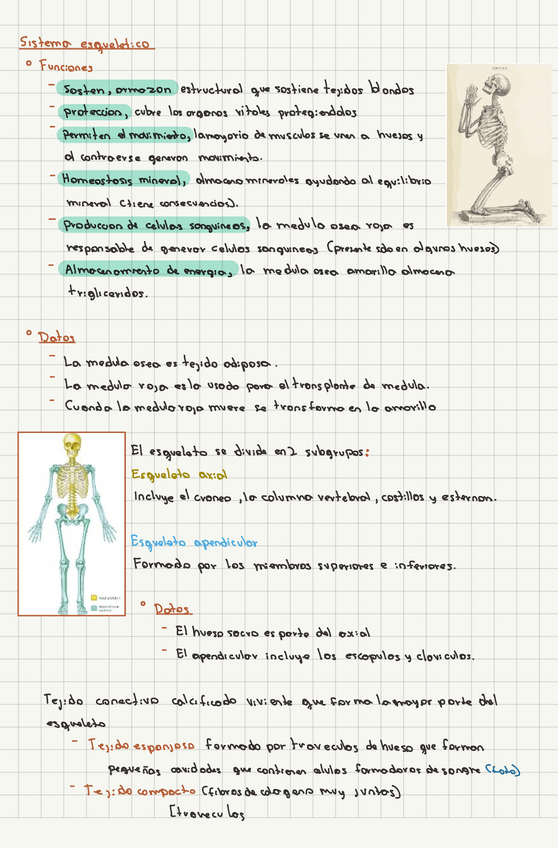 Sistema esqueletico
° Funciones
- Sosten, armazon estructural que sostiene tejidos blandos
- proteccion, cubre los organos vitales protegiendolos
- Permiten el movimiento, la mayoria de musculos se unen a huesos y
al contraerse generan movimiento.
- Homeostasis mineral, almacena minerales ayudando al equilibrio
mineral (tiene consecuencias).
- Produccion de celulas sanguineas, la medula osea roja es
responsable de generar celulas sanguineas (presente solo en algunos huesos)
- Almacenamiento de energia, la medula osea amarilla almacena
trigliceridos.
° Datos
- La medula osea es tejido adiposo.
- La medula roja es la usada para el transplante de medula.
- Cuando la medula roja muere se transforma en la amarilla
El esqueleto se divide en 2 subgrupos:
Esqueleto axial
Incluye el craneo, la columna vertebral, costillas y esternon.
Esqueleto apendicular
Formado por los miembros superiores e inferiores.
° Datos
- El hueso sacro es parte del axial
- El apendicular incluye las escapulas y claviculas.
Tejido conectivo calcificado viviente que forma la mayor parte del
esqueleto
- Tejido esponjoso formado por traveculas de hueso que forman
pequeñas cavidades que contienen celulas formadoras de sangre
- Tejido compacto (fibras de colageno muy juntas)
[traveculas